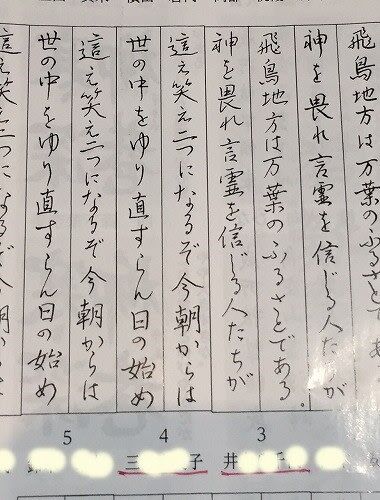 飛鳥地方は万葉のふるさとであ
神を畏れ言霊を信じる人たちが
飛鳥地方は万葉のふるさとである。
神を畏れ言霊を信じる人たちが
這え笑え二つになるぞ今朝からは
世の中をゆり直すらん日の始め
這え笑え二つになるぞ今朝からは
世の中をゆり直すらん日の始め
這え笑え二つになるぞ今朝から
3
井 千
4
三 子
5